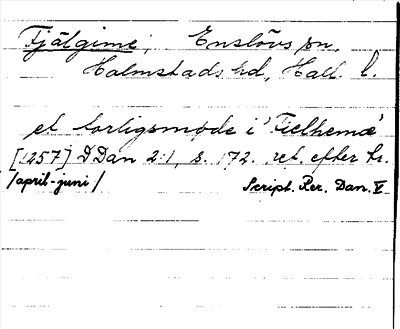 Fjälgime, Enslövs sn,
Halmstads hd, Hall. l.
et torligsmøde i 'Fielhemæ'
[1257] DDan 2:1, s. 172. ret. efter tr.
/april-juni/ Script. Rer. Dan. V